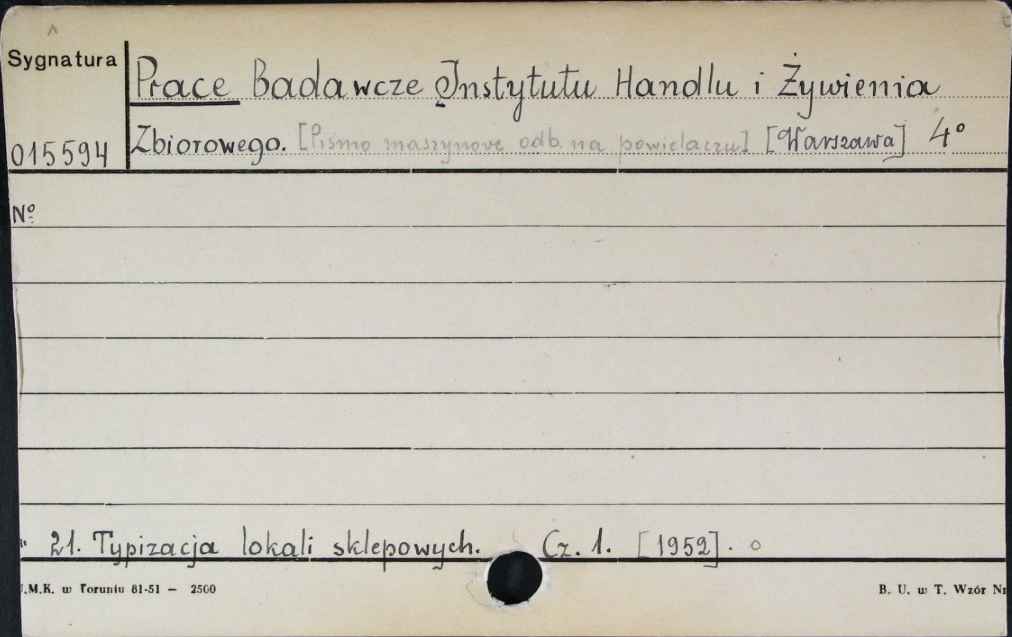 Sygnatura
Prace Badawcze Instytutu Handlu i Żywienia
015594
Zbiorowego. [Pismo maszynowe odb. na powielaczu] [Warszawa] 4°
Nº
" 21. Typizacja lokali sklepowych. Cz. 1. [1952].
.M.K. w Toruniu 81-51 — 2500
B. U. w T. Wzór Nr